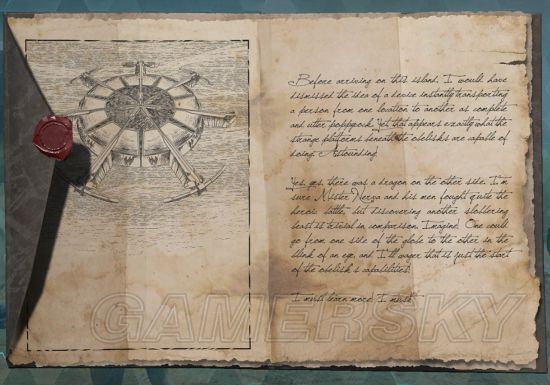 Before arriving on this island, I would have
dismissed the idea of a device instantly transporting
a person from one location to another as complete
and utter poppycock. Yet that appears exactly what the
strange platforms beneath the obelisks are capable of
doing. Astounding.
Yes, yes, there was a dragon on the other side. I'm
sure Mister Nerva and his men fought quite the
heroic battle, but discovering another slobbering
beast is trivial in comparison. Imagine! One could
go from one side of the globe to the other in the
blink of an eye, and I'll wager that is just the start
of the obelisk's capabilities!
I must learn more. I must.
GAMERSKY